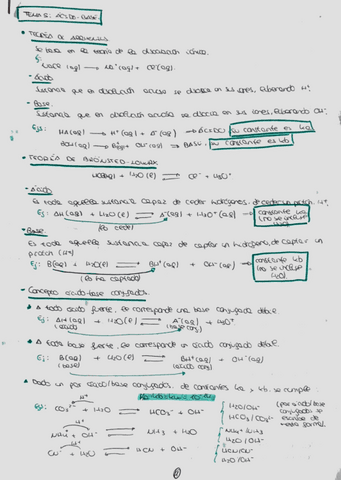 TEMA 5: ÁCIDO-BASE
• TEORÍA DE ARRHENIUS
Se basa en la teoría de la disociación iónica.
Ej:
NaCl (aq) → Na⁺(aq) + Cl⁻(aq).
- Ácido
Sustancia que en disolución acuosa se disocia en sus iones, liberando H⁺.
- Base
Sustancia que en disolución acuosa se disocia en sus iones, liberando OH⁻.
Ejs: HA(aq) → H⁺(aq) + A⁻(aq) → ÁCIDO su constante es Ka
BOH(aq) → B⁺(aq) + OH⁻(aq) → BASE su constante es Kb
• TEORÍA DE BRÖNSTED-LOWRY
+ H₂O(l) ⇌ Cl⁻ + H₃O⁺
- Ácido
Es toda aquella sustancia capaz de ceder de ceder un protón H⁺.
Ej: AH(aq) + H₂O(l) ⇌ A⁻(aq) + H₃O⁺(aq) → constante Ka (no se incluye H₂O)
(lo cede)
- Base
Es toda aquella sustancia capaz de captar un de captar un
protón (H⁺)
Ej: B(aq) + H₂O(l) ⇌ BH⁺(aq) + OH⁻(aq) → constante Kb (no se incluye H₂O)
(lo ha captado)
- Concepto ácido-base conjugados.
▲ A todo ácido fuerte, le corresponde una base conjugada débil
Ej: AH(aq) + H₂O(l) ⇌ A⁻(aq) + H₃O⁺
(ácido) (base conj)
▲ A toda base fuerte, le corresponde un ácido conjugado débil.
Ej: B(aq) + H₂O(l) ⇌ BH⁺(aq) + OH⁻(aq)
(base) (ácido conj)
• Dado un par ácido/base conjugados, de constantes Ka y Kb, se cumple:
Ejs: CO₃²⁻ + H₂O ⇌ HCO₃⁻ + OH⁻
H₂O/OH⁻
HCO₃⁻/CO₃²⁻
(par ácido/base conjugados se escribe de esta forma)
NH₄⁺ + OH⁻ ⇌ NH₃ + H₂O
NH₄⁺/NH₃
H₂O/OH⁻
CN⁻ + H₂O ⇌ HCN + OH⁻
HCN/CN⁻
H₂O/OH⁻